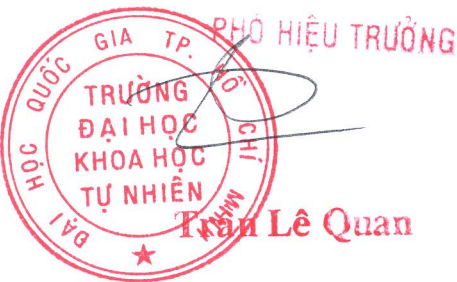 PHÓ HIỆU TRƯỞNG
ĐẠI HỌC QUỐC GIA TP. HỒ CHÍ MINH
TRƯỜNG
ĐẠI HỌC
KHOA HỌC
TỰ NHIÊN
Trần Lê Quan